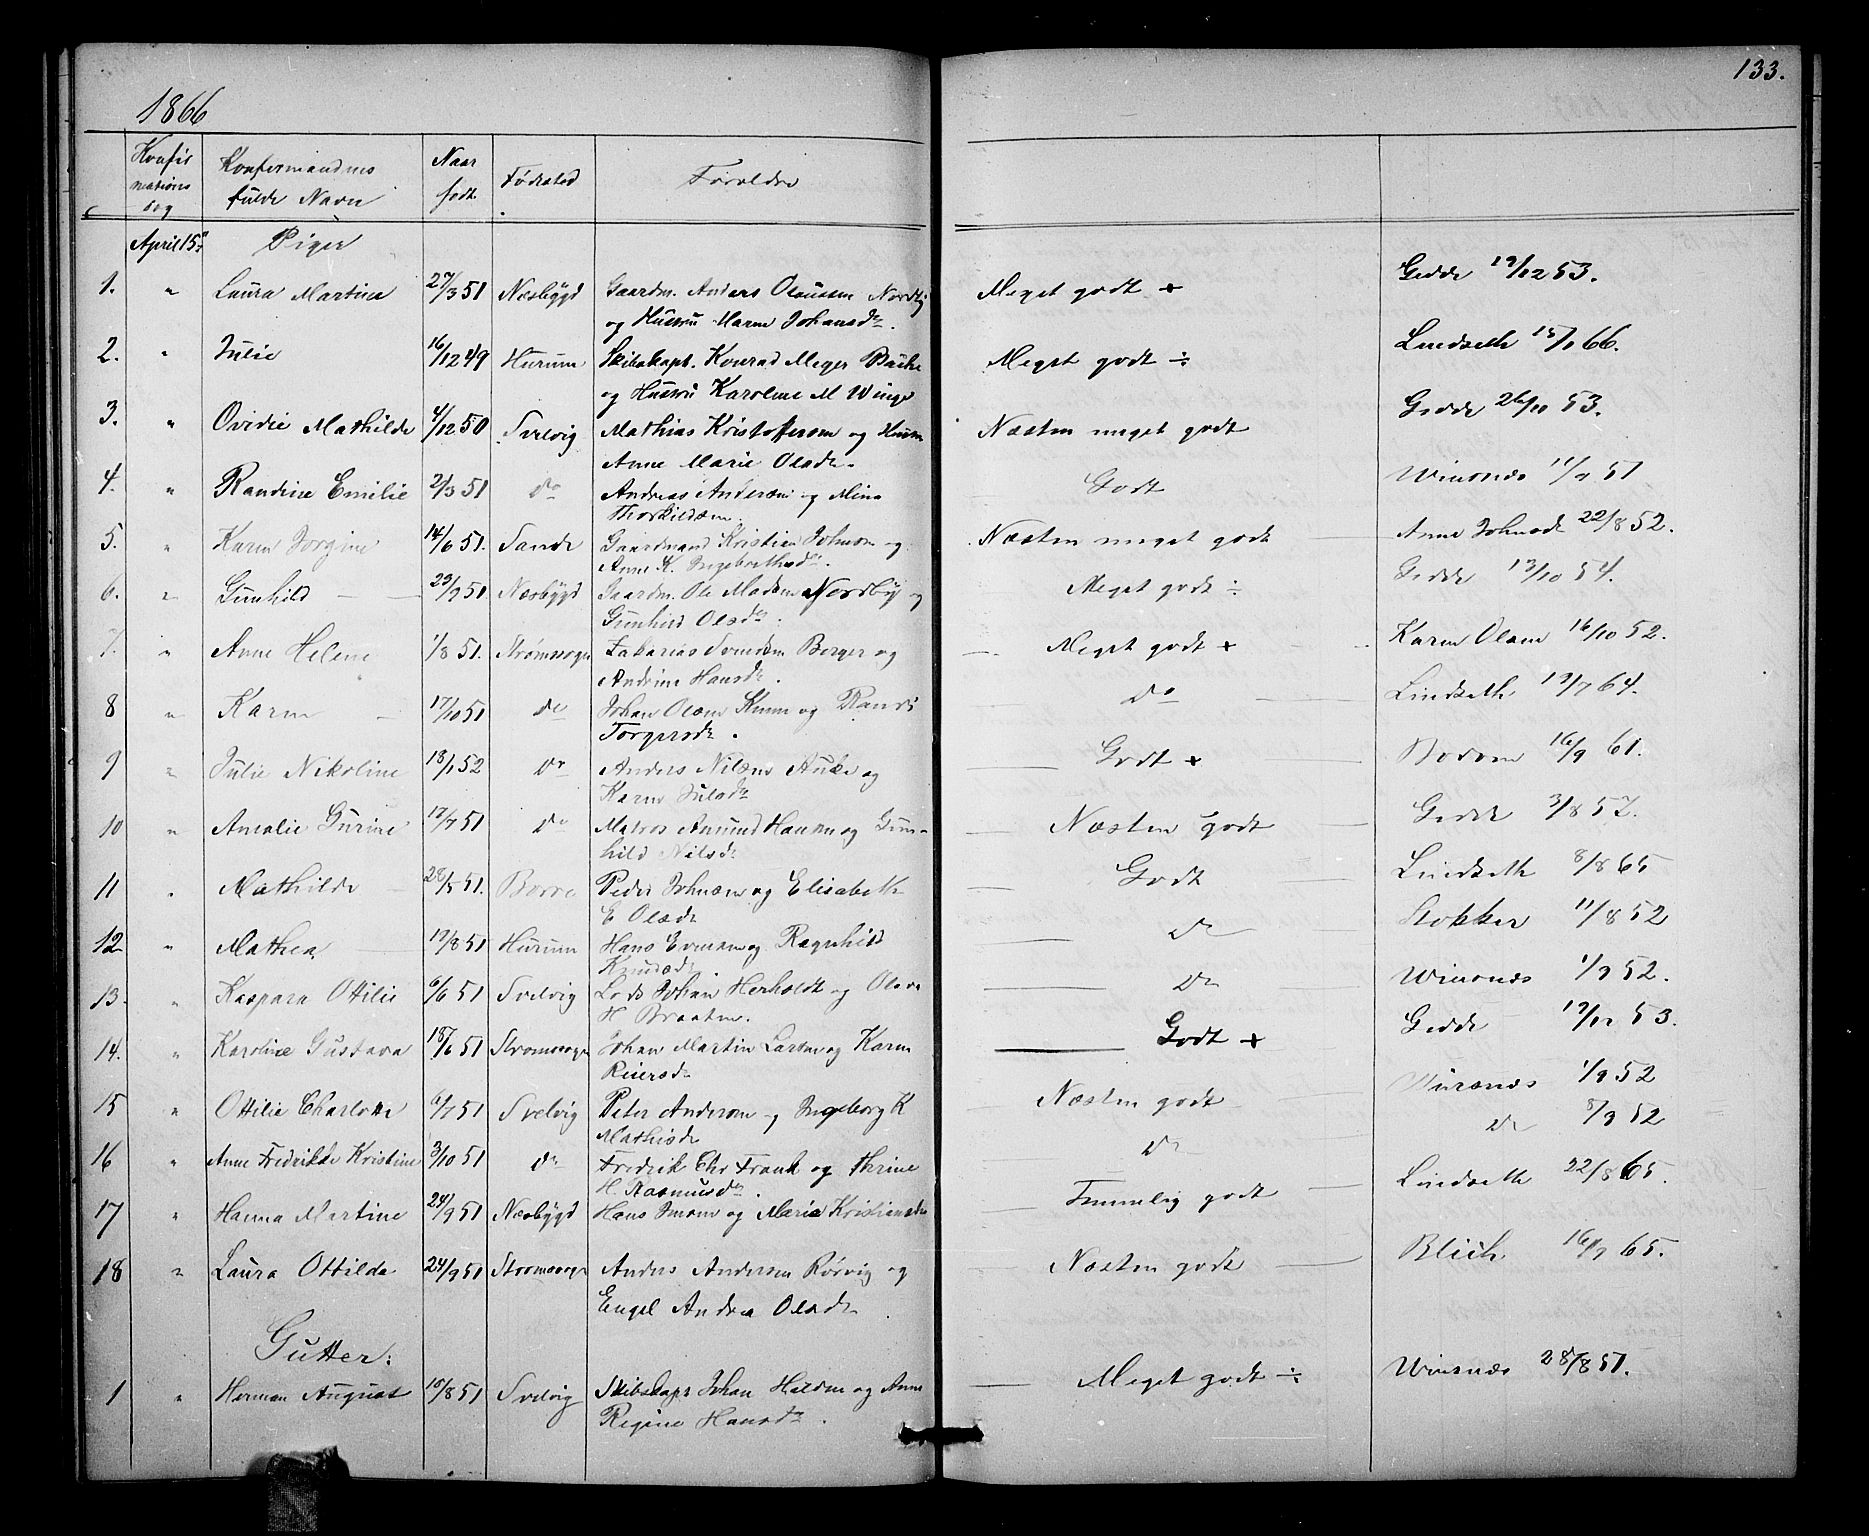 133.
1866
Konfir Konfirmandens Naar Fødested Forældre
mations fulde Navn født
dag
April 15de Piger
1. " Laura Martine 27/3 51 Næsbygd Gaardm. Anders Olaussen Nordby Meget godt + Gedde 19/12 53.
og Hustru Maren Johansdr.
2. " Julie 16/12 49 Hurum Skibskapt. Konrad Meyer Bache Meget godt ÷ Lindseth 15/1 66.
og Hustru Karoline M Winge
3. " Ovidie Mathilde 4/12 50 Svelvig Mathias Kristoffersen og Hustru Næsten meget godt Gedde 26/11 53.
Anne Marie Olsdr.
4. " Randine Emilie 2/3 51 do Andreas Andersen og Mina Godt Winsnæs 11/9 51
Thorkildsen.
5. " Karen Jorgine 14/6 51. Sande Gaardmand Kristian Johnsen og Næsten meget godt Anne Johnsdr 22/8 52.
Anne K. Ingebrethsdr.
6. " Gunhild 29/9 51 Næsbygd Gaardm. Ole Madsen Nordby og Meget godt ÷ Gedde 13/10 54.
Gunhild Olsdr.
7. " Anne Helene 1/8 51. Strømsogn Zakarias Svendsen Berger og Meget godt + Karen Olsen 16/10 52.
Andrine Hansdr.
8 " Karen 17/10 51 do Johan Olsen og Randi do Lindseth 19/7 64.
Torgersdr.
9 " Julie Nikoline 18/1 52 do Anders Nilsen Auke og Godt + Bodom 16/9 61.
Karen Julsdr
10 " Amalie Gurine 17/7 51 do Matros Amund Hansen og Gun- Næsten godt Gedde 3/8 57.
hild Nilsdr
11 " Mathilde 28/5 51. Borre Peder Johnsen og Elisabeth Godt Lindseth 8/8 65
E Olsdr
12 " Mathea 19/8 51 Hurum Hans Evensen og Ragnhild do Stokker 11/8 52
Knudsdr.
13. " Kaspara Ottilie 6/6 51 Svelvig Lods Johan Herholdt og Olava do Winsnæs 1/9 52.
H Braaten.
14. " Karoline Gustava 18/6 51 Strømsogn Johan Martin Larsen og Karen Godt + Gedde 19/12 53.
Reiersdr
15 " Ottilie Charlotte 6/7 51 Svelvig Peter Andersen og Ingeborg K Næsten godt Winsnæs 1/9 52
Mathisdr
16 " Anne Fredrikke Kristine 3/10 51 do Fredrik Chr Frank og Thrine do do 8/9 52
H. Rasmusdr.
17 " Hanna Martine 24/9 51 Næsbygd Hans Jensen og Maria Kristiansdr Temmelig godt Lindseth 22/8 65.
18 " Laura Ottilde 24/9 51 Strømsogn Anders Andersen Rørvig og Næsten godt Blich 16/7 65.
Engel Andrea Olsdr
Gutter:
1 " Herman August 15/8 51 Svelvig Skibskapt Johan Halden og Anne Meget godt ÷ Winsnæs 28/8 51.
Regine Hansdr.